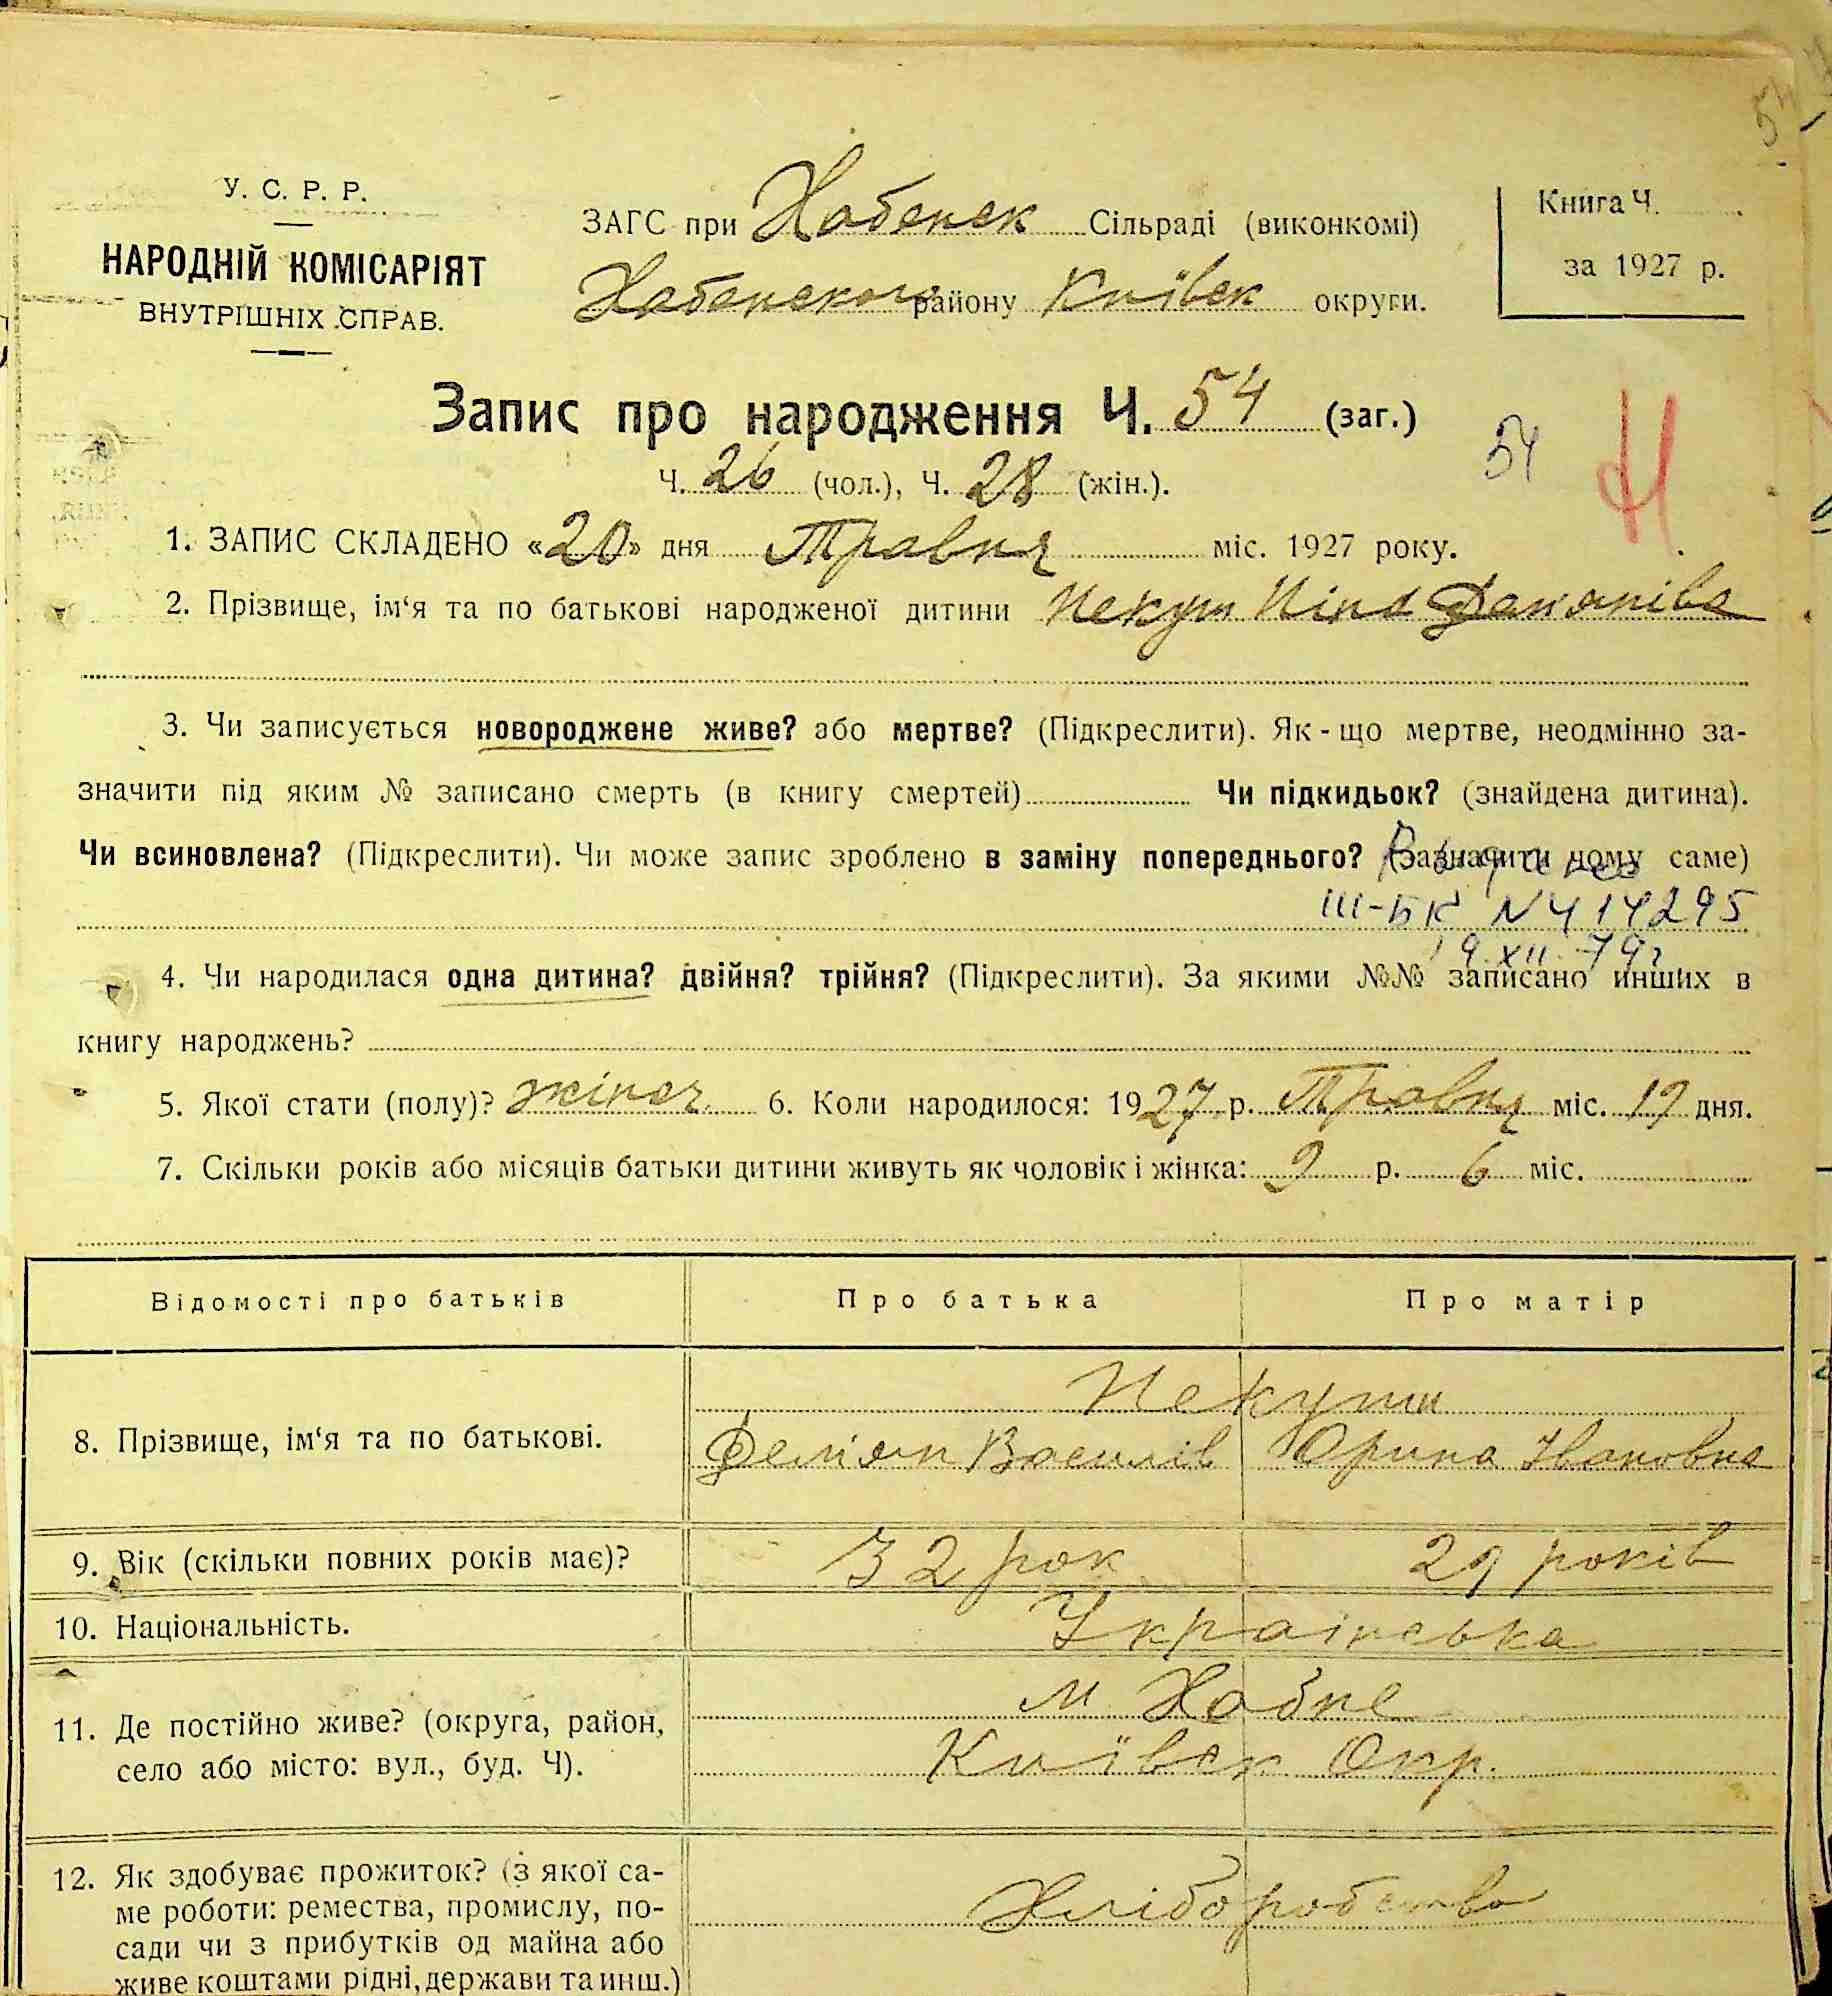 54
У. С. Р. Р.
НАРОДНІЙ КОМІСАРІЯТ
ВНУТРІШНІХ СПРАВ.
ЗАГС при Хабенск Сільраді (виконкомі)
Хабенского району Київск округи.
Книга Ч.
за 1927 р.
Запис про народження Ч. 54 (заг.)
54
Н
Ч. 26 (чол.), Ч. 28 (жін.).
1. ЗАПИС СКЛАДЕНО «20» дня Травня міс. 1927 року.
2. Прізвище, ім‘я та по батькові народженої дитини Некуш Ніна Демянівна
3. Чи записується новороджене живе? або мертве? (Підкреслити). Як-що мертве, неодмінно за-
значити під яким № записано смерть (в книгу смертей) Чи підкидьок? (знайдена дитина).
Чи всиновлена? (Підкреслити). Чи може запис зроблено в заміну попереднього? (Зазначити чому саме)
III-БК N 414295
19.XII.79г
4. Чи народилася одна дитина? двійня? трійня? (Підкреслити). За якими №№ записано инших в
книгу народжень?
5. Якої стати (полу)? жіноч 6. Коли народилося: 1927 р. Травня міс. 19 дня.
7. Скільки років або місяців батьки дитини живуть як чоловік і жінка: 9 р. 6 міс.
Відомості про батьків Про батька Про матір
Некуш
8. Прізвище, ім‘я та по батькові. Демян Василів Орина Івановна
9. Вік (скільки повних років має)? 32 рок 29 років
10. Національність. Українська
11. Де постійно живе? (округа, район,
село або місто: вул., буд. Ч).
м. Хабне
Київск Окр.
12. Як здобуває прожиток? (з якої са-
ме роботи: ремества, промислу, по-
сади чи з прибутків од майна або
живе коштами рідні, держави та инш.)
Хліборобство